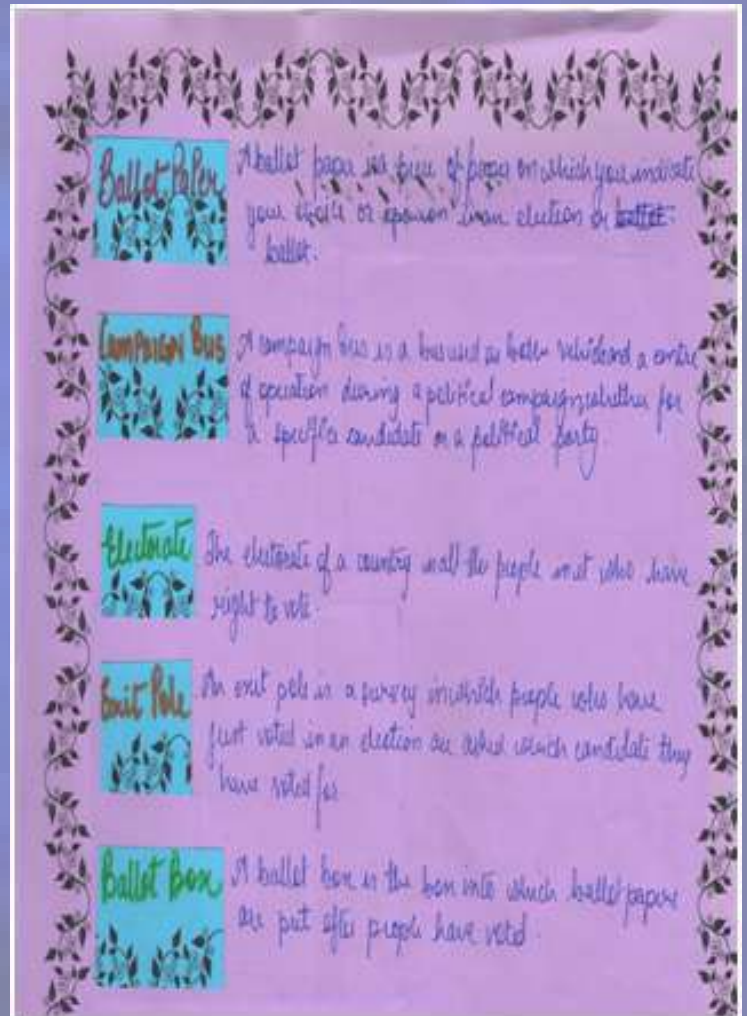 Ballot Paper
A ballot paper is a piece of paper on which you indicate
your choice or opinion in an election or ballot
ballot.
Campaign Bus
A campaign bus is a bus used as both vehicle and a centre
of operation during a political campaign, whether for
a specific candidate or a political party
Electorate
The electorate of a country is all the people in it who have
right to vote.
Exit Pole
An exit pole is a survey in which people who have
just voted in an election are asked which candidate they
have voted for
Ballot Box
A ballot box is the box into which ballot papers
are put after people have voted.